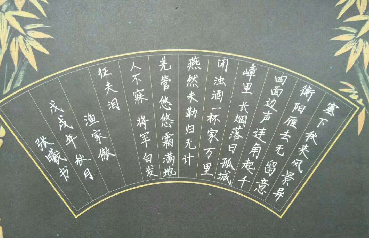 塞下秋来风景异
衡阳雁去无留意
四面边声连角起千
嶂里长烟落日孤城
闭浊酒一杯家万里
燕然未勒归无计
羌管悠悠霜满地
人不寐 将军白发
征夫泪
渔家傲
戊戌年秋月
张曦书